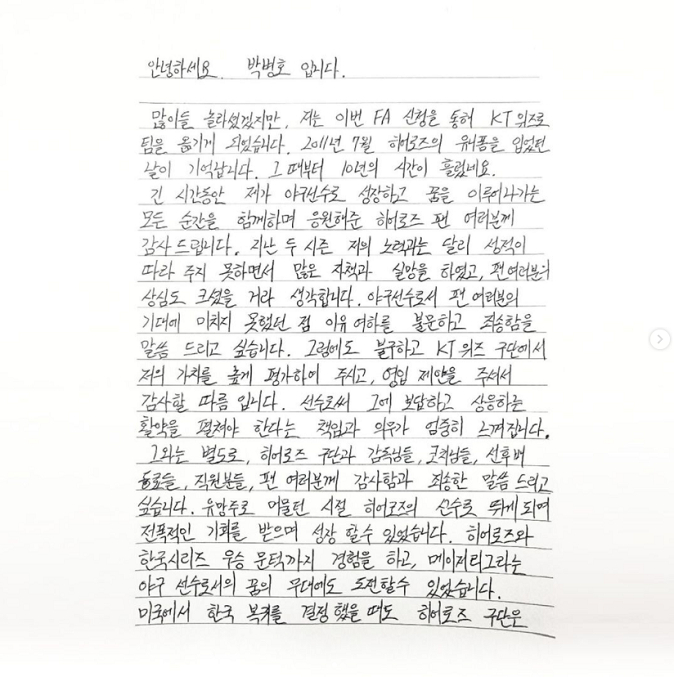 안녕하세요. 박병호 입니다.
많이들 놀라셨겠지만, 저는 이번 FA 신청을 통해 KT위즈로
팀을 옮기게 되었습니다. 2011년 7월 히어로즈의 유니폼을 입었던
날이 기억납니다. 그 때부터 10년의 시간이 흘렀네요.
긴 시간동안 제가 야구선수로 성장하고 꿈을 이루어나가는
모든 순간을 함께하며 응원해준 히어로즈 팬 여러분께
감사드립니다. 지난 두 시즌 저의 노력과는 달리 성적이
따라 주지 못하면서 많은 자책과 실망을 하였고, 팬 여러분의
상심도 크셨을 거라 생각합니다. 야구선수로서 팬 여러분의
기대에 미치지 못했던 점 이유 여하를 불문하고 죄송함을
말씀 드리고 싶습니다. 그럼에도 불구하고 KT위즈 구단에서
저의 가치를 높게 평가하여 주시고, 영입 제안을 주셔서
감사할 따름 입니다. 선수로써 그에 보답하고 상응하는
활약을 펼쳐야 한다는 책임과 의무가 엄중히 느껴집니다.
그와는 별도로, 히어로즈 구단과 감독님들, 코치님들, 선후배
동료들, 직원분들, 팬 여러분께 감사함과 죄송한 말씀 드리고
싶습니다. 유망주로 머물던 시절 히어로즈의 선수로 뛰게 되며
전폭적인 기회를 받으며 성장 할 수 있었습니다. 히어로즈와
한국시리즈 우승 문턱까지 경험을 하고, 메이저리그라는
야구 선수로서의 꿈의 무대에도 도전할 수 있었습니다.
미국에서 한국 복귀를 결정했을 때도 히어로즈 구단은